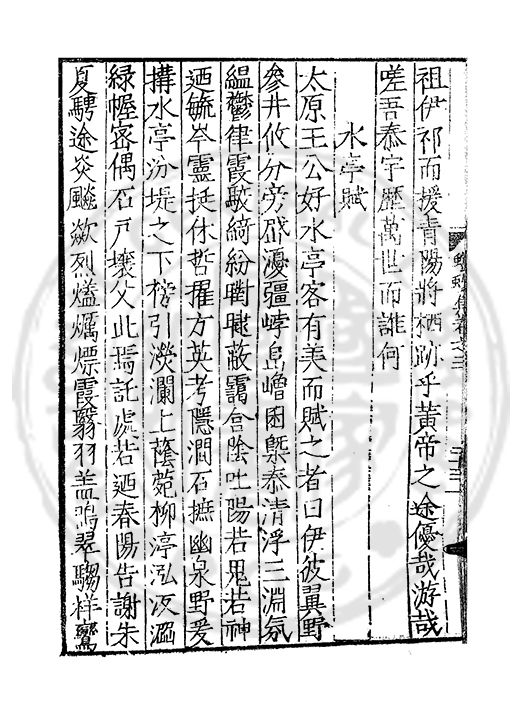 祖伊祁而援青陽將栖跡乎黃帝之途優哉游哉
嗟吾泰宇歷萬世而誰何
水亭賦
太原王公好水亭客有美而賦之者曰伊彼翼野
參井攸分旁 瀀疆崞島嶒囷槩泰清浮三淵氛
縕鬱律霞駮綺紛 蔽靄含陰吐陽若鬼若神
迺毓岑靈挺休哲擢方英考隱澗石撫幽泉野爰
搆水亭汾堤之下榜引濙瀾上蔭菀柳渟泓 漚
綠幄密偶石戶壤父此焉託處若迺春陽告謝朱
夏騁途炎飈歘烈爐爥熛霞翳羽盖鳴翠騶祥鸞